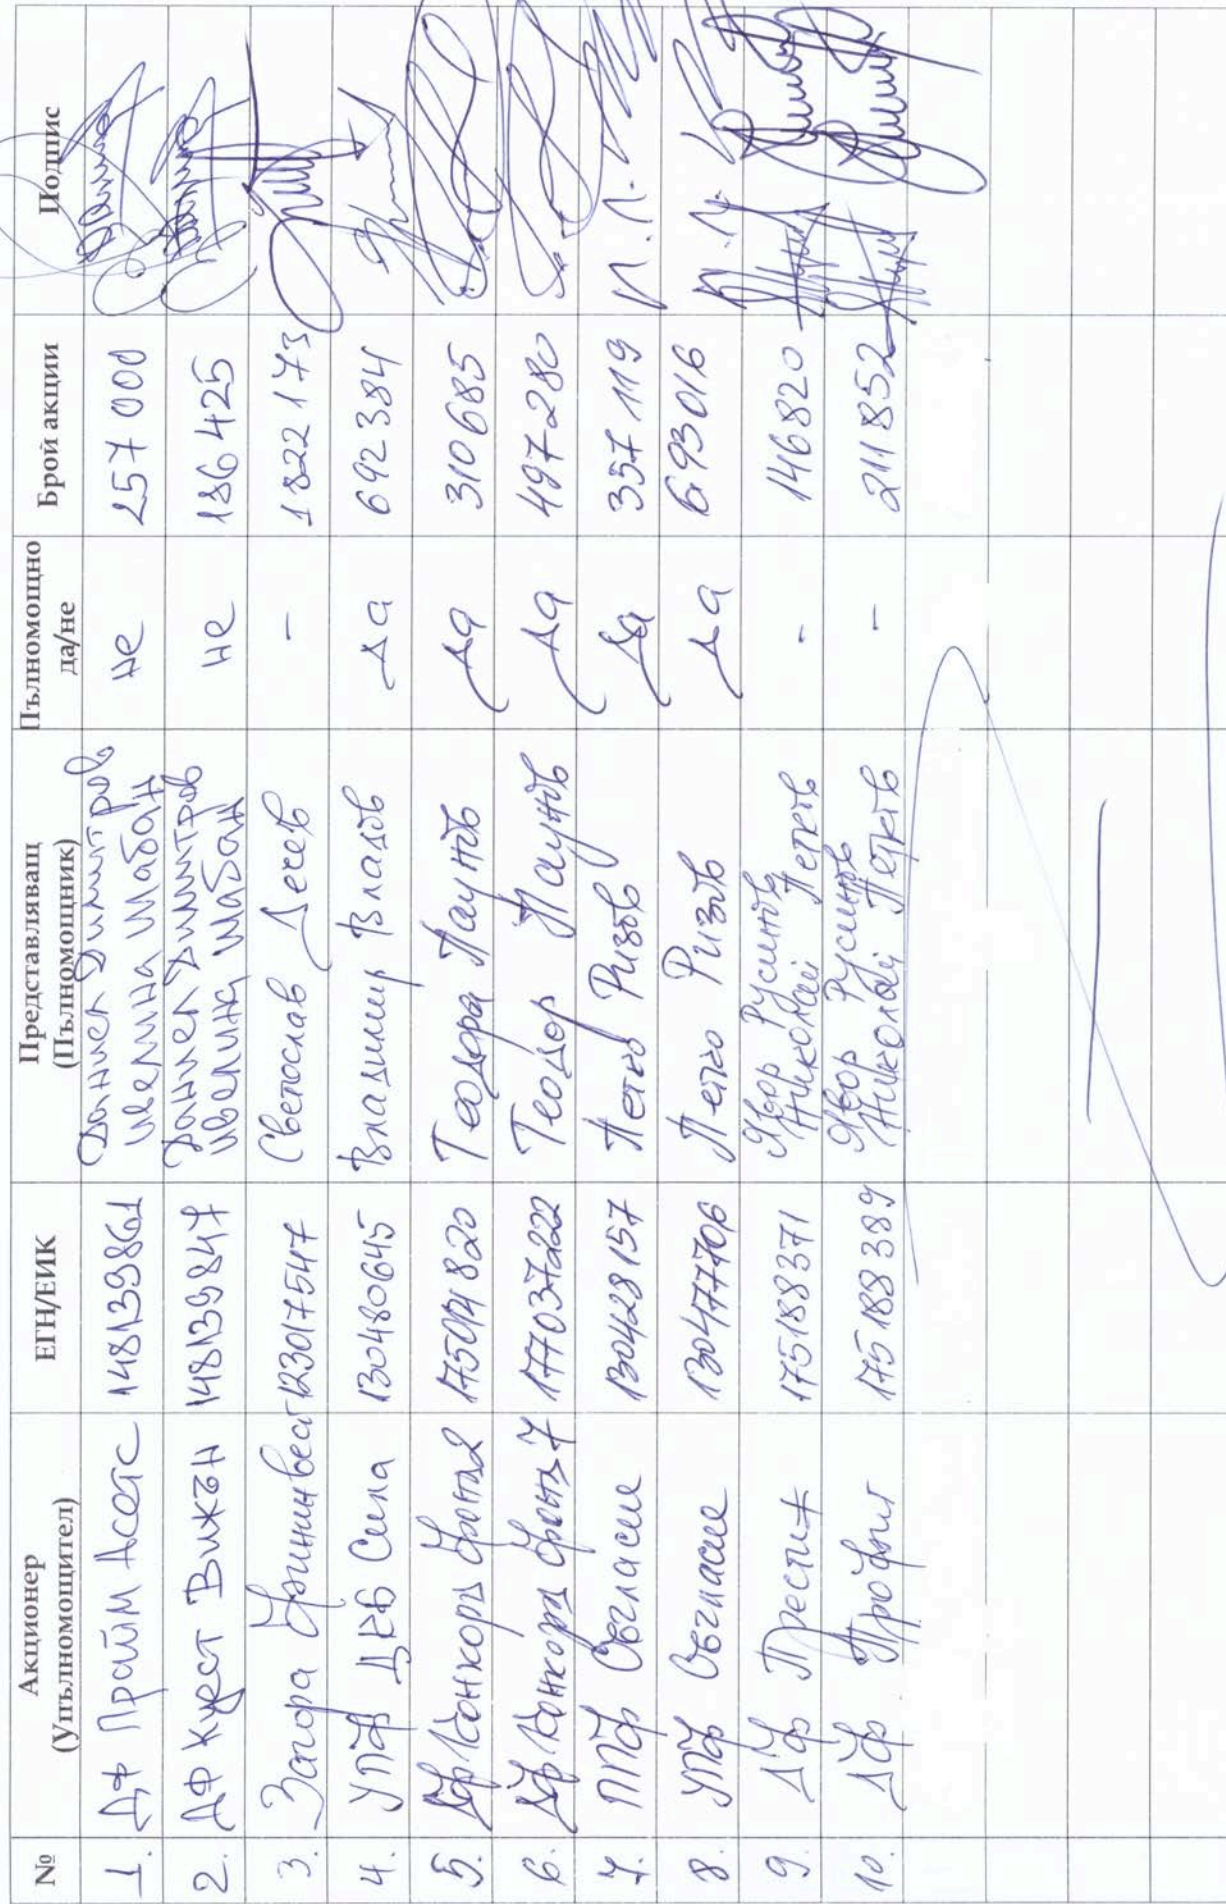 № Акционер (Упълномощител) ЕГН/ЕИК Представляващ (Пълномощник) Пълномощно да/не Брой акции Подпис
1. ДФ Прайм Асетс 148139861 Даниел Димитров Ивелина Шабан не 257 000
2. ДФ Куест Вижън 148139847 Даниел Димитров Ивелина Шабан не 186 425
3. Загора Фининвест 123017547 Светослав Лечев - 1822173
4. УПФ ДСБ Сила 130480645 Владимир Владов да 692384
5. ДФ Конкорд Фонд2 175014820 Теодора Паунов да 310685
6. ДФ Конкорд Фонд7 177037222 Теодор Паунов да 497280
7. ППФ Съгласие 130428157 Петко Ризов да 357119 п.п.
8. УПФ Съгласие 130477706 Петко Ризов да 693016 п.п.
9. ДФ Престиж 175188371 Явор Русинов Николай Петков - 146820
10. ДФ Профит 175188389 Явор Русинов Николай Петков - 211852